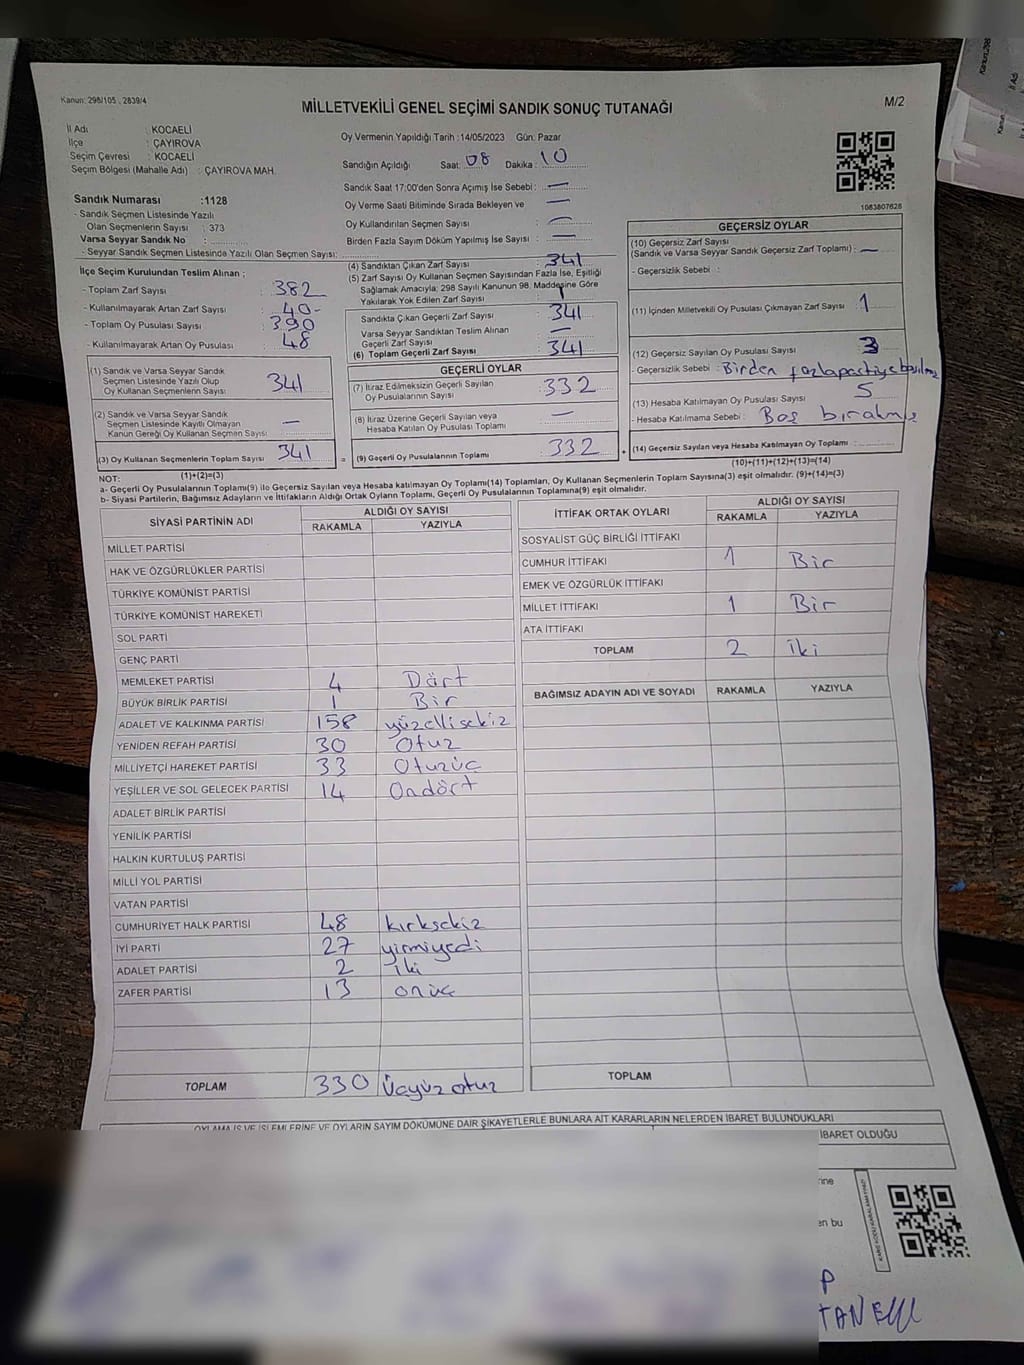 Kanun: 298/105 , 2839/4
MİLLETVEKİLİ GENEL SEÇİMİ SANDIK SONUÇ TUTANAĞI
M/2
İl Adı : KOCAELİ
İlçe : ÇAYIROVA
Seçim Çevresi : KOCAELİ
Seçim Bölgesi (Mahalle Adı) : ÇAYIROVA MAH.
Sandık Numarası :1128
- Sandık Seçmen Listesinde Yazılı
Olan Seçmenlerin Sayısı : 373
Varsa Seyyar Sandık No :
- Seyyar Sandık Seçmen Listesinde Yazılı Olan Seçmen Sayısı:
Oy Vermenin Yapıldığı Tarih :14/05/2023 Gün: Pazar
Sandığın Açıldığı Saat: 08 Dakika : 10
Sandık Saat 17:00'den Sonra Açımış İse Sebebi : —
Oy Verme Saati Bitiminde Sırada Bekleyen ve —
Oy Kullandırılan Seçmen Sayısı : —
Birden Fazla Sayım Döküm Yapılmış İse Sayısı : —
1083807628
İlçe Seçim Kurulundan Teslim Alınan ;
- Toplam Zarf Sayısı : 382
- Kullanılmayarak Artan Zarf Sayısı : 40-
- Toplam Oy Pusulası Sayısı : 390
- Kullanılmayarak Artan Oy Pusulası : 48
(1) Sandık ve Varsa Seyyar Sandık
Seçmen Listesinde Yazılı Olup
Oy Kullanan Seçmenlerin Sayısı : 341
(2) Sandık ve Varsa Seyyar Sandık
Seçmen Listesinde Kayıtlı Olmayan
Kanun Gereği Oy Kullanan Seçmen Sayısı : —
(3) Oy Kullanan Seçmenlerin Toplam Sayısı : 341
(1)+(2)=(3)
(4) Sandıktan Çıkan Zarf Sayısı : 341
(5) Zarf Sayısı Oy Kullanan Seçmen Sayısından Fazla İse, Eşitliği
Sağlamak Amacıyla; 298 Sayılı Kanunun 98. Maddesine Göre
Yakılarak Yok Edilen Zarf Sayısı :
Sandıkta Çıkan Geçerli Zarf Sayısı : 341
Varsa Seyyar Sandıktan Teslim Alınan
Geçerli Zarf Sayısı : —
(6) Toplam Geçerli Zarf Sayısı : 341
GEÇERLİ OYLAR
(7) İtiraz Edilmeksizin Geçerli Sayılan
Oy Pusulasının Sayısı : 332
(8) İtiraz Üzerine Geçerli Sayılan veya
Hesaba Katılan Oy Pusulası Toplamı : —
= (9) Geçerli Oy Pusulalarının Toplamı : 332 +
GEÇERSİZ OYLAR
(10) Geçersiz Zarf Sayısı
(Sandık ve Varsa Seyyar Sandık Geçersiz Zarf Toplamı) : —
- Geçersizlik Sebebi :
(11) İçinden Milletvekili Oy Pusulası Çıkmayan Zarf Sayısı : 1
(12) Geçersiz Sayılan Oy Pusulası Sayısı : 3
- Geçersizlik Sebebi : Birden fazla partiye basılmış
(13) Hesaba Katılmayan Oy Pusulası Sayısı : 5
- Hesaba Katılmama Sebebi : Boş bırakmış
(14) Geçersiz Sayılan veya Hesaba Katılmayan Oy Toplamı :
(10)+(11)+(12)+(13)=(14)
NOT:
a- Geçerli Oy Pusulalarının Toplamı(9) ile Geçersiz Sayılan veya Hesaba katılmayan Oy Toplamı(14) Toplamları, Oy Kullanan Seçmenlerin Toplam Sayısına(3) eşit olmalıdır. (9)+(14)=(3)
b- Siyasi Partilerin, Bağımsız Adayların ve İttifakların Aldığı Ortak Oyların Toplamı, Geçerli Oy Pusulalarının Toplamına(9) eşit olmalıdır.
SİYASİ PARTİNİN ADI
ALDIĞI OY SAYISI
RAKAMLA YAZIYLA
MİLLET PARTİSİ
HAK VE ÖZGÜRLÜKLER PARTİSİ
TÜRKİYE KOMÜNİST PARTİSİ
TÜRKİYE KOMÜNİST HAREKETİ
SOL PARTİ
GENÇ PARTİ
MEMLEKET PARTİSİ 4 Dört
BÜYÜK BİRLİK PARTİSİ 1 Bir
ADALET VE KALKINMA PARTİSİ 158 yüzellisekiz
YENİDEN REFAH PARTİSİ 30 Otuz
MİLLİYETÇİ HAREKET PARTİSİ 33 Otuzüç
YEŞİLLER VE SOL GELECEK PARTİSİ 14 Ondört
ADALET BİRLİK PARTİSİ
YENİLİK PARTİSİ
HALKIN KURTULUŞ PARTİSİ
MİLLİ YOL PARTİSİ
VATAN PARTİSİ
CUMHURİYET HALK PARTİSİ 48 kırksekiz
İYİ PARTİ 27 yirmiyedi
ADALET PARTİSİ 2 iki
ZAFER PARTİSİ 13 onüç
TOPLAM 330 üçyüz otuz
İTTİFAK ORTAK OYLARI
ALDIĞI OY SAYISI
RAKAMLA YAZIYLA
SOSYALİST GÜÇ BİRLİĞİ İTTİFAKI
CUMHUR İTTİFAKI 1 Bir
EMEK VE ÖZGÜRLÜK İTTİFAKI
MİLLET İTTİFAKI 1 Bir
ATA İTTİFAKI
TOPLAM 2 iki
BAĞIMSIZ ADAYIN ADI VE SOYADI RAKAMLA YAZIYLA
TOPLAM
OYLAMA İŞ VE İŞLEMLERİNE VE OYLARIN SAYIM DÖKÜMÜNE DAİR ŞİKAYETLERLE BUNLARA AİT KARARLARIN NELERDEN İBARET BULUNDUKLARI
İBARET OLDUĞU